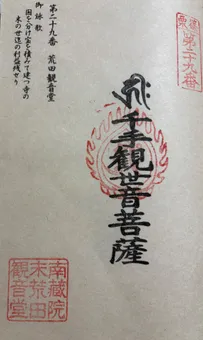 第二十九番　荒田観音堂
御詠歌
国を分け宝を積みて建つ寺の
末の世迄の利益残せり
第二十九番
千手観世音菩薩
南蔵院
末荒田
観音堂